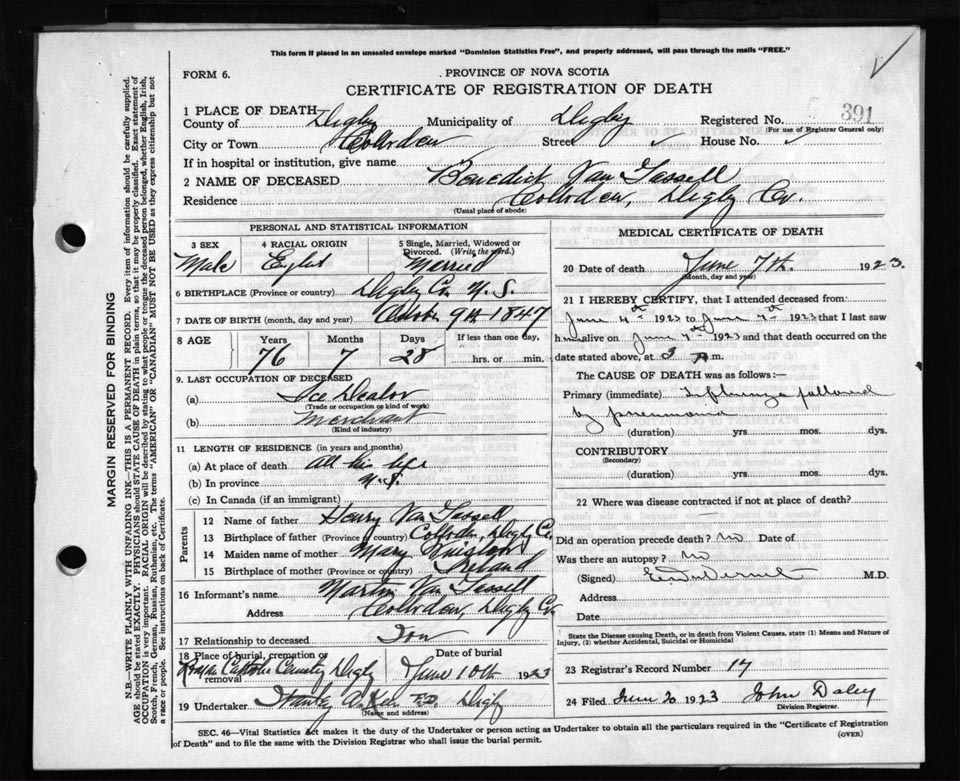 This form if placed in an unsealed envelope marked "Dominion Statistics Free", and properly addressed, will pass through the mails "FREE."
FORM 6.
PROVINCE OF NOVA SCOTIA
CERTIFICATE OF REGISTRATION OF DEATH
391
1 PLACE OF DEATH—
County of Digby Municipality of Digby Registered No.
(For use of Registrar General only)
City or Town Street House No.
If in hospital or institution, give name
2 NAME OF DECEASED Benedict Van Tassell
Residence Digby Co.
(Usual place of abode)
PERSONAL AND STATISTICAL INFORMATION
3 SEX 4 RACIAL ORIGIN 5 Single, Married, Widowed or Divorced. (Write the word.)
Male Married
6 BIRTHPLACE (Province or country) Digby Co. N.S.
7 DATE OF BIRTH (month, day and year) 9th 1847
8 AGE Years Months Days If less than one day,
76 7 28 hrs. or min.
9. LAST OCCUPATION OF DECEASED
(a) Ice Dealer
(Trade or occupation or kind of work)
(b) Merchant
(Kind of industry)
11 LENGTH OF RESIDENCE (in years and months)
(a) At place of death All his life
(b) In province N.S.
(c) In Canada (if an immigrant)
Parents
12 Name of father Henry Van Tassell
13 Birthplace of father (Province or country) Digby Co.
14 Maiden name of mother Mary
15 Birthplace of mother (Province or country) Ireland
16 Informant's name Martin Van Tassell
Address Digby Co.
17 Relationship to deceased Son
18 Place of burial, cremation or removal Digby
Date of burial June 10th 1923
19 Undertaker Digby
(Name and address)
MEDICAL CERTIFICATE OF DEATH
20 Date of death June 7th. 1923.
(Month, day and year)
21 I HEREBY CERTIFY, that I attended deceased from
June 4th 1923 to June 7th 1923 that I last saw
him alive on June 7th 1923 and that death occurred on the
date stated above, at 3 m.
The CAUSE OF DEATH was as follows:—
Primary (immediate) Influenza followed
by pneumonia
(duration) yrs. mos. dys.
CONTRIBUTORY
(Secondary)
(duration) yrs. mos. dys.
22 Where was disease contracted if not at place of death?
Did an operation precede death? no Date of
Was there an autopsy? no
(Signed) M.D.
Address
Date
State the Disease causing Death, or in death from Violent Causes, state (1) Means and Nature of
Injury, (2) whether Accidental, Suicidal or Homicidal
23 Registrar's Record Number 17
24 Filed June 20 1923 John Daley
Division Registrar.
SEC. 46—Vital Statistics Act makes it the duty of the Undertaker or person acting as Undertaker to obtain all the particulars required in the "Certificate of Registration
of Death" and to file the same with the Division Registrar who shall issue the burial permit.
(OVER)
MARGIN RESERVED FOR BINDING
N.B.—WRITE PLAINLY WITH UNFADING INK—THIS IS A PERMANENT RECORD. Every item of information should be carefully supplied.
AGE should be stated EXACTLY. PHYSICIANS should STATE CAUSE OF DEATH in plain terms, so that it may be properly classified. Exact statement of
OCCUPATION is very important. RACIAL ORIGIN will be described by stating to what people or tongue the deceased person belonged, whether English, Irish,
Scotch, French, German, Russian, Ruthenian, etc. The terms "AMERICAN" or "CANADIAN" MUST NOT BE USED as they express citizenship but not
a race or people. See instructions on back of Certificate.